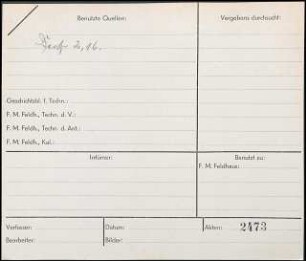 Benutzte Quellen:
Vergebens durchsucht:
2, 16.
Geschichtsbl. f. Techn.:
F. M. Feldh., Techn. d. V.:
F. M. Feldh., Techn. d. Ant.:
F. M. Feldh., Kal.:
Irrtümer:
Benutzt zu:
F. M. Feldhaus:
Verfasser:
Datum:
Akten: 2473
Bearbeiter:
Bilder: